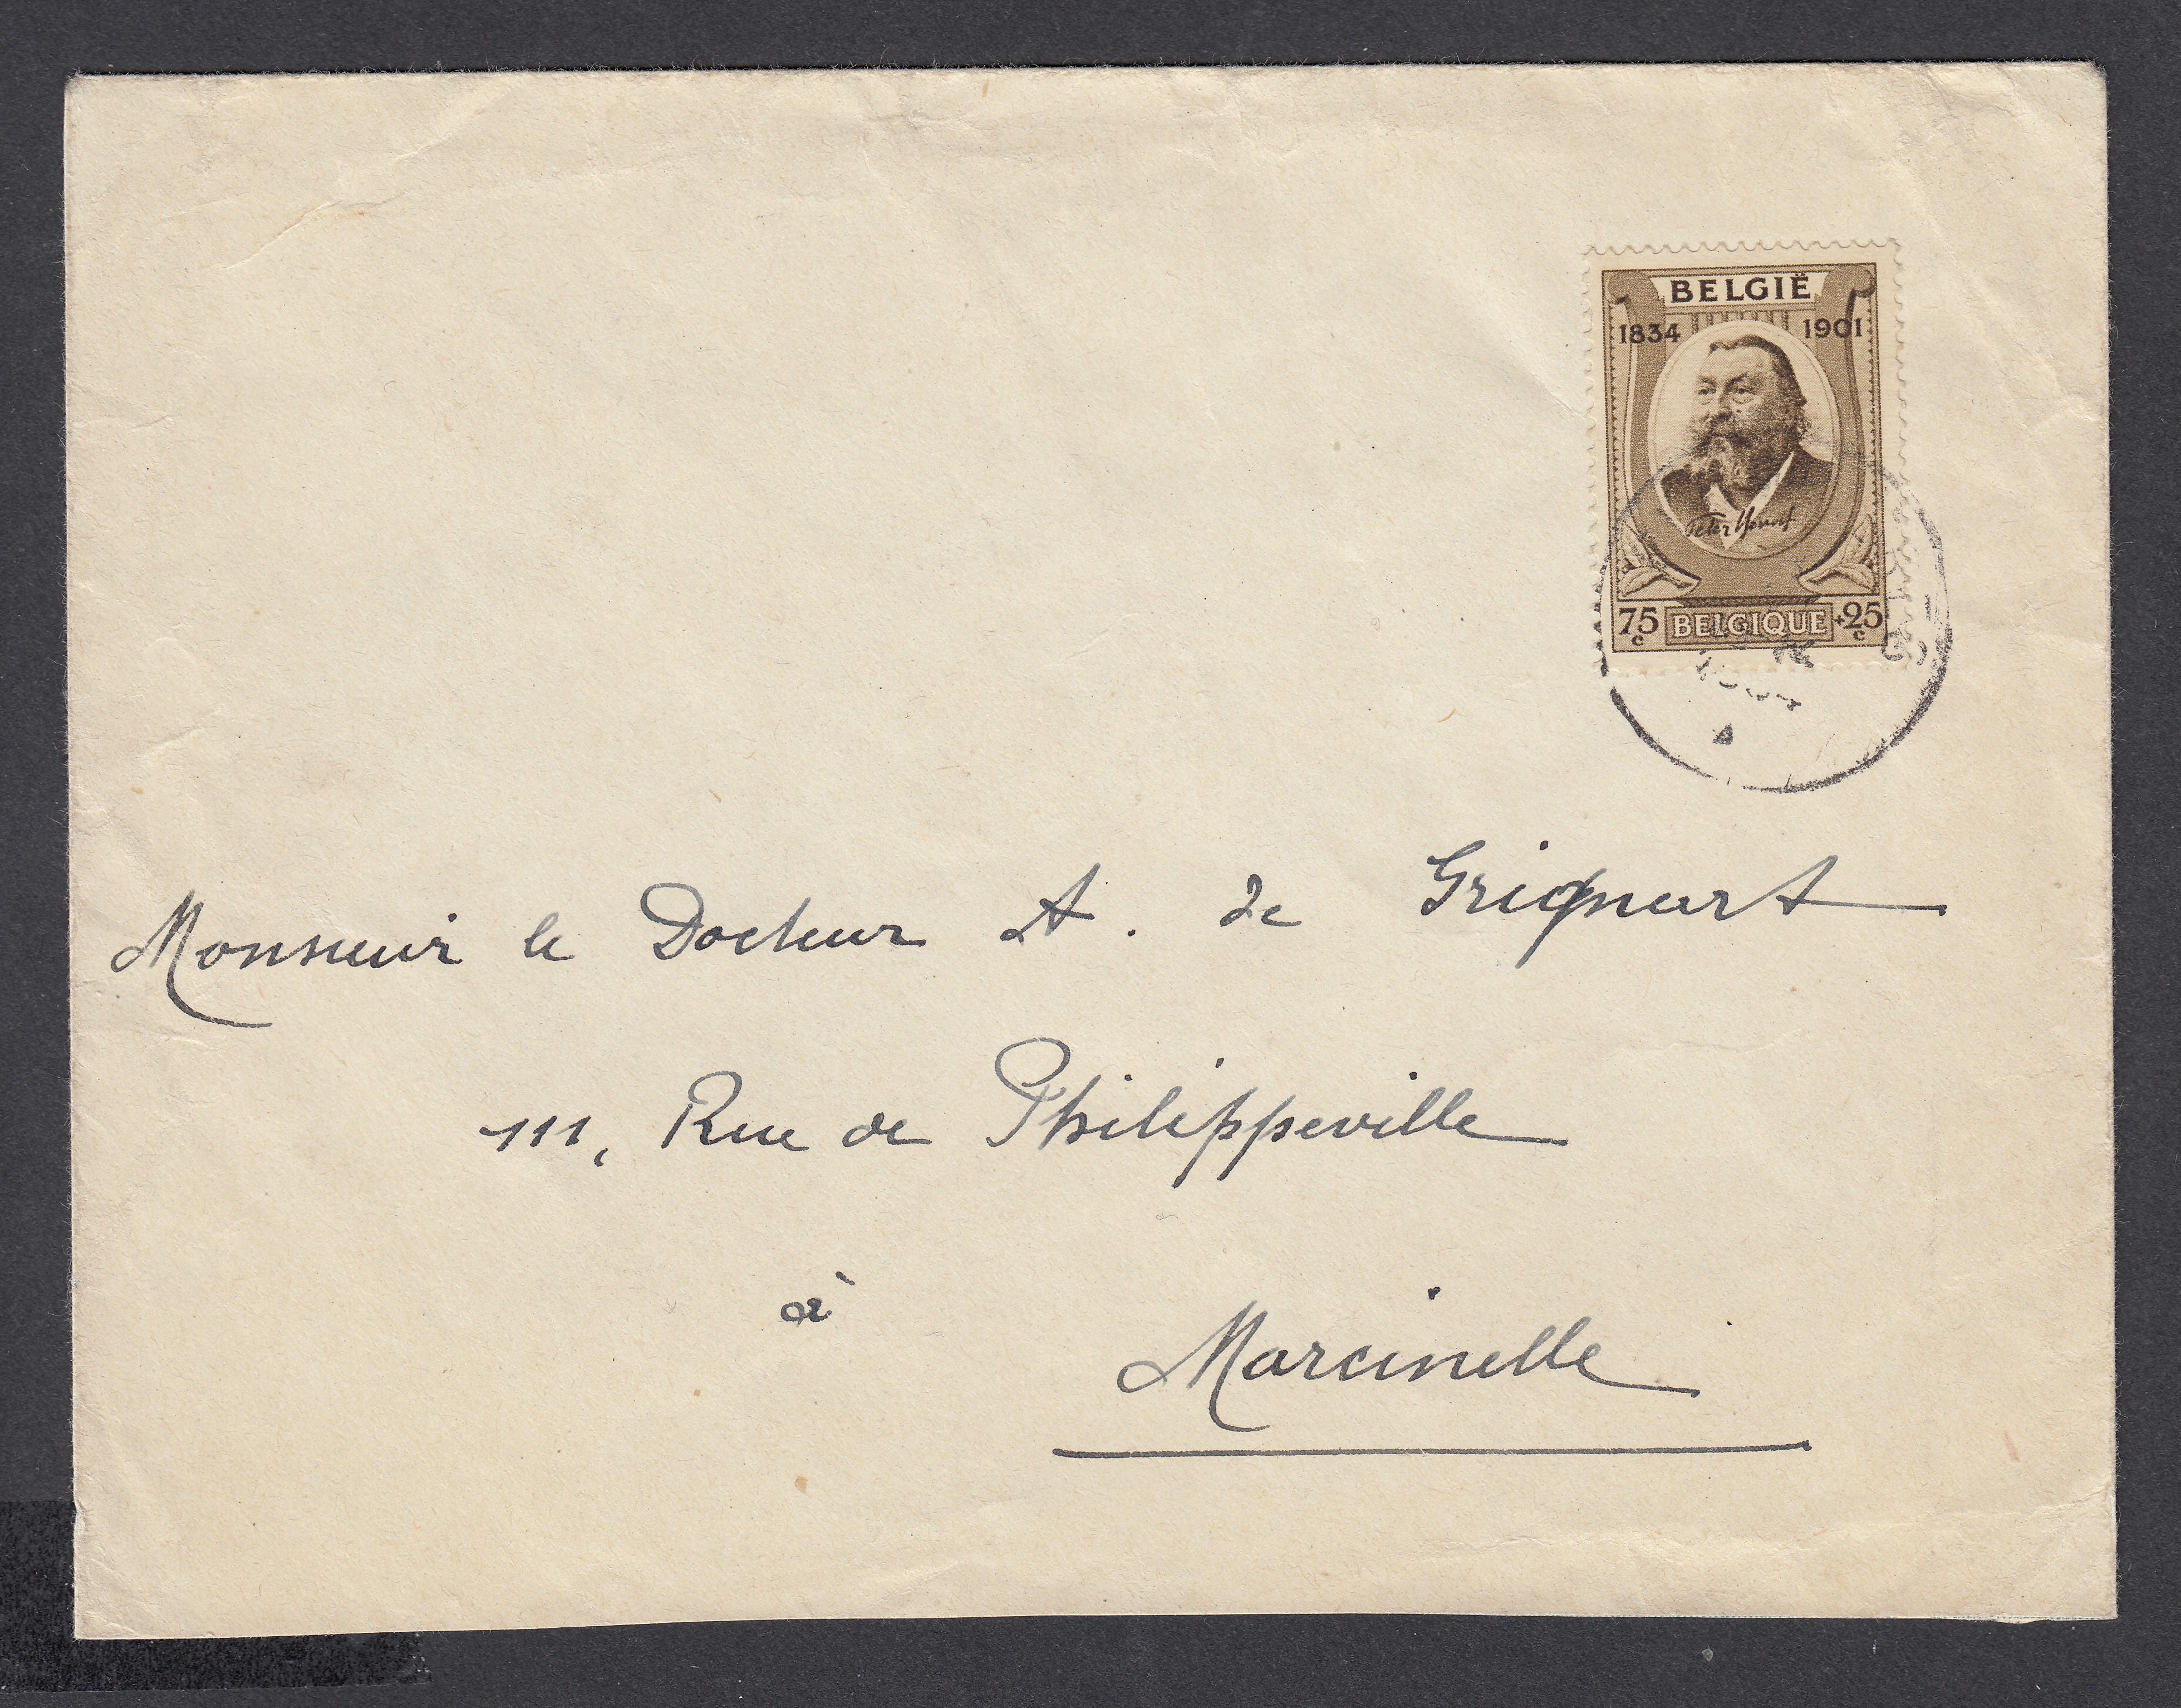 BELGIË
1834 1901
Peter Benoit
75c BELGIQUE +25c
Monsieur le Docteur A. de Grignart
111, Rue de Philippeville
à
Marcinelle